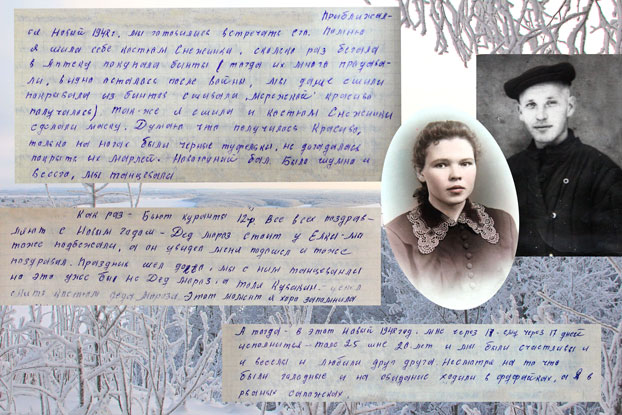 Приближал-
ся Новый 1948г. мы готовились встречать его. Помню
я шила себе костюм Снежинки, сколько раз бегала
в Аптеку покупала бинты (тогда их много продава-
ли, видно осталось после войны, мы даже сшили
покрывала из бинтов сшивали „мережкой" красиво
получалось) так-же я сшила и костюм Снежинки
сделали маску. Думаю что получилось красиво,
только на ногах были черные туфельки, не догадалась
покрыть их марлей. Новогодний бал. Было шумно и
весело, мы танцевали
Как раз - бьют куранты 12ч все всех поздрав-
ляют с Новым годом - Дед мороз стоит у Елки - мы
тоже подбежали, а он увидел меня подошел и тоже
поздравил. Праздник шел мы с ним танцевали
но это уже был не Дед мороз, а Толя
снять костюм деда мороза. Этот момент я хоро запомнила
А тогда - в этот Новый 1948 год. мне через 17 дней
исполнится - Толе 25 мне 20 лет и мы были счастливы и
и веселы и любили друг друга несмотря на то что
были голодные и на свидание ходили в фуфайках, а я в
рваных сапожках